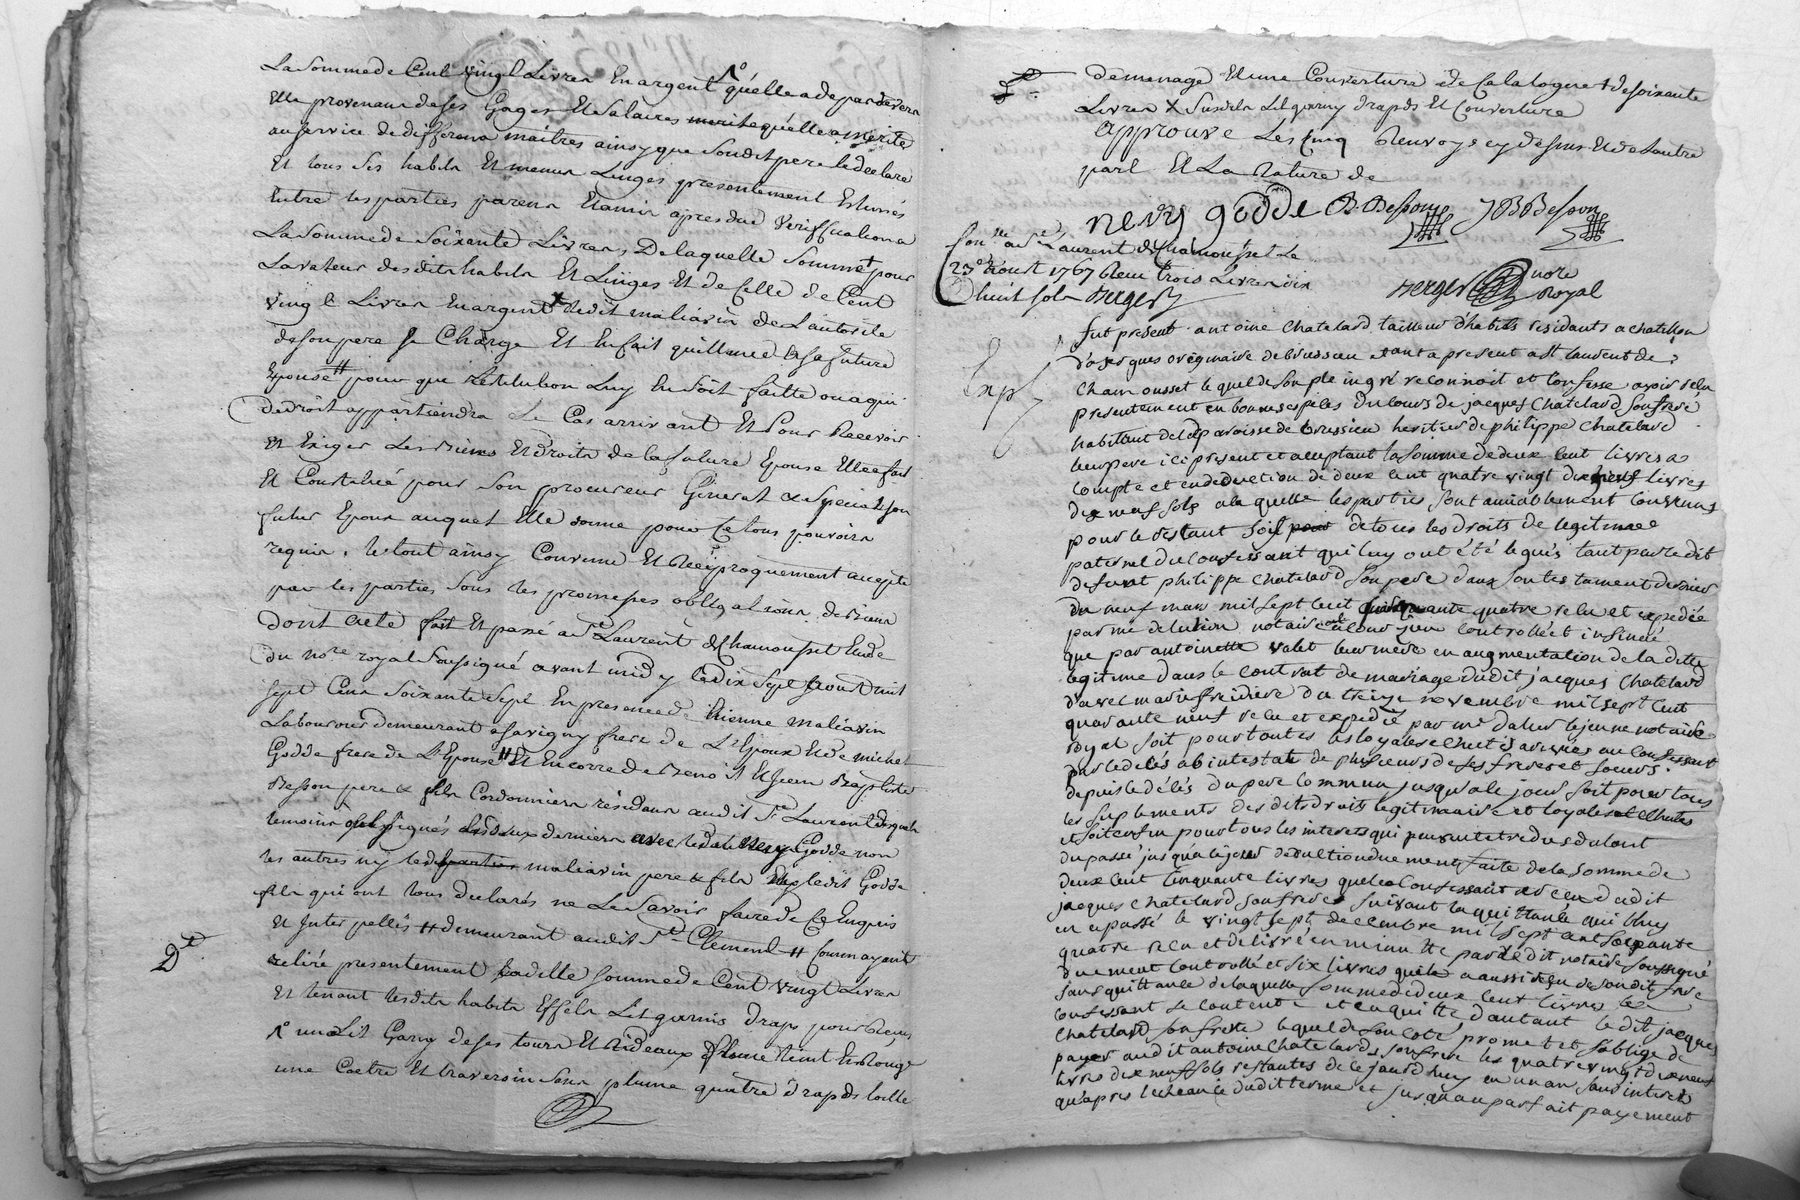 La somme de Cent vingt Livres En argent 1° qu'elle a de par devers
Elle provenant de ses Gages Et Salaires merite qu'elle a merité
au service de differens maitres ainsy que Son dit pere le declare
Et tous ses habits Et menus Linges presentement Estimés
Entre les parties parens Et amis apres due veriffication a
La somme de Soixante Livres, De laquelle Somme + pour
La valeur desdits habits Et Linges Et de Celle de Cent
vingt Livres En argent ledit maliavin de L'autorité
de son pere Se Charge Et En fait quittance a Sa future
Epouse # pour que restitution Luy En Soit faitte ou a qui
de droit appartiendra Le Cas arrivant Et Pour Recevoir
Et Exiger Les biens Et droits de la future Epouse Elle a fait
Et Constitué pour Son procureur General & Special Son
futur Epoux auquel Elle donne pour Ce tous pouvoirs
requis. le tout ainsy Convenu Et Reciproquement accepté
par les parties Sous les promesses obligations de biens
Dont acte fait Et passé a St Laurent de Chamousset Etude
du nore royal Soussigné avant midy le dix Sept Aoust mil
Sept Cens Soixante Sept En presence de Etienne maliavin
Laboureur demeurant a Savigny frere de L'Epoux Et de michel
Godde frere de L'Epouse # Et Encorre de Benoit Et Jean Baptiste
Besson pere & fils Cordonniers résidans audit St Laurent desquels
temoins Soussignés les deux derniers avec ledit Nery Godde non
les autres ny les parties maliavin pere & fils Ledit Godde
fille qui ont tous declarés ne Le Savoir faire de Ce Enquis
Et Interpellés # demeurant audit St Clement # Comm' ayant
2t
retiré presentement Ladille Somme de Cent vingt Livres
Et tenant lesdits habits Effets Lit garnis draps pour
1° un Lit Garny de ses tours Et Rideaux de laine teint En Rouge
une Coetre Et traversin Sans plume quatre draps de toille
de menage Et une Couverture de Catalogne + de soixante
Livres X Susdits Lit garny draps Et Couverture
approuvé Les Cinq Renvoys cy dessus Et de L'autre
part Et La Rature de
nery godde B. Besson J B Besson
Con.lé a St Laurent de Chamousset Le
23e Aoust 1767 Reçu trois Livres dix
huit Sols Berger
Berger nore
Royal
Exp.
fut present antoine chatelard tailleur d'habits residants a chatillon
d'asergues originaire de brussieu etant a present a St laurent de
Chamousset le quel de son ple in gré reconnoit et confesse avoir reçu
presentement en bonnes especes du cours de jacques Chatelard son frere
habitant de ladite paroisse de brussieu heritier de philippe chatelard
leur pere ici present et acceptant la somme de deux cent livres a
compte et en deduction de deux cent quatre vingt dix neuf livres
dix neuf sols a la quelle les parties sont amiablement convenus
pour le restant soit pour de tous les droits de legitimee
paternel du confessant qui luy ont été legués tant par ledit
defunt philippe chatelard son pere dans son testament dernier
du neuf mars mil sept cent quarante quatre reçu et expedié
par me delution notaire controllé et insinué
que par antoinette valet leur mere en augmentation de la dite
legitime dans le contrat de mariage dudit jacques chatelard
d'avec marie freidiere du treize novembre mil sept cent
quarante neuf reçu et expedié par me dalier lejeune notaire
royal soit pour toutes les loyales echuts arivés au confessant
par le decés abintestat de plusieurs de ses freres et soeurs
depuis le décés du pere commun jusqu'a ce jour soit pour tous
les suplements desdits droits legitimaire et loyales echutes
et soit enfin pour tous les interets qui peuvent etre dus du tout
du passé jusqu'a ce jour déduction duement faite de la somme de
deux cent cinquante livres que le confessant a reçu dudit
jacques chatelard son frere suivant la quittance qui luy
en a passé le vingt sept decembre mil sept cent soixante
quatre reçu et delivré en minutte par ledit notaire soussigné
duement controllé et six livres qu'il a aussi reçu de sondit frere
sans quittance de la quelle somme de deux cent livres le
confessant se contente et en quitte d'autant le dit jacques
chatelard son frere le quel de son coté promet et s'oblige de
payer audit antoine chatelard son frere les quatre vingt dix neuf
livres dix neuf sols restantes de ce jourd'huy en un an sans interets
qu'apres l'echeance dudit terme et jusqu'au parfait payement